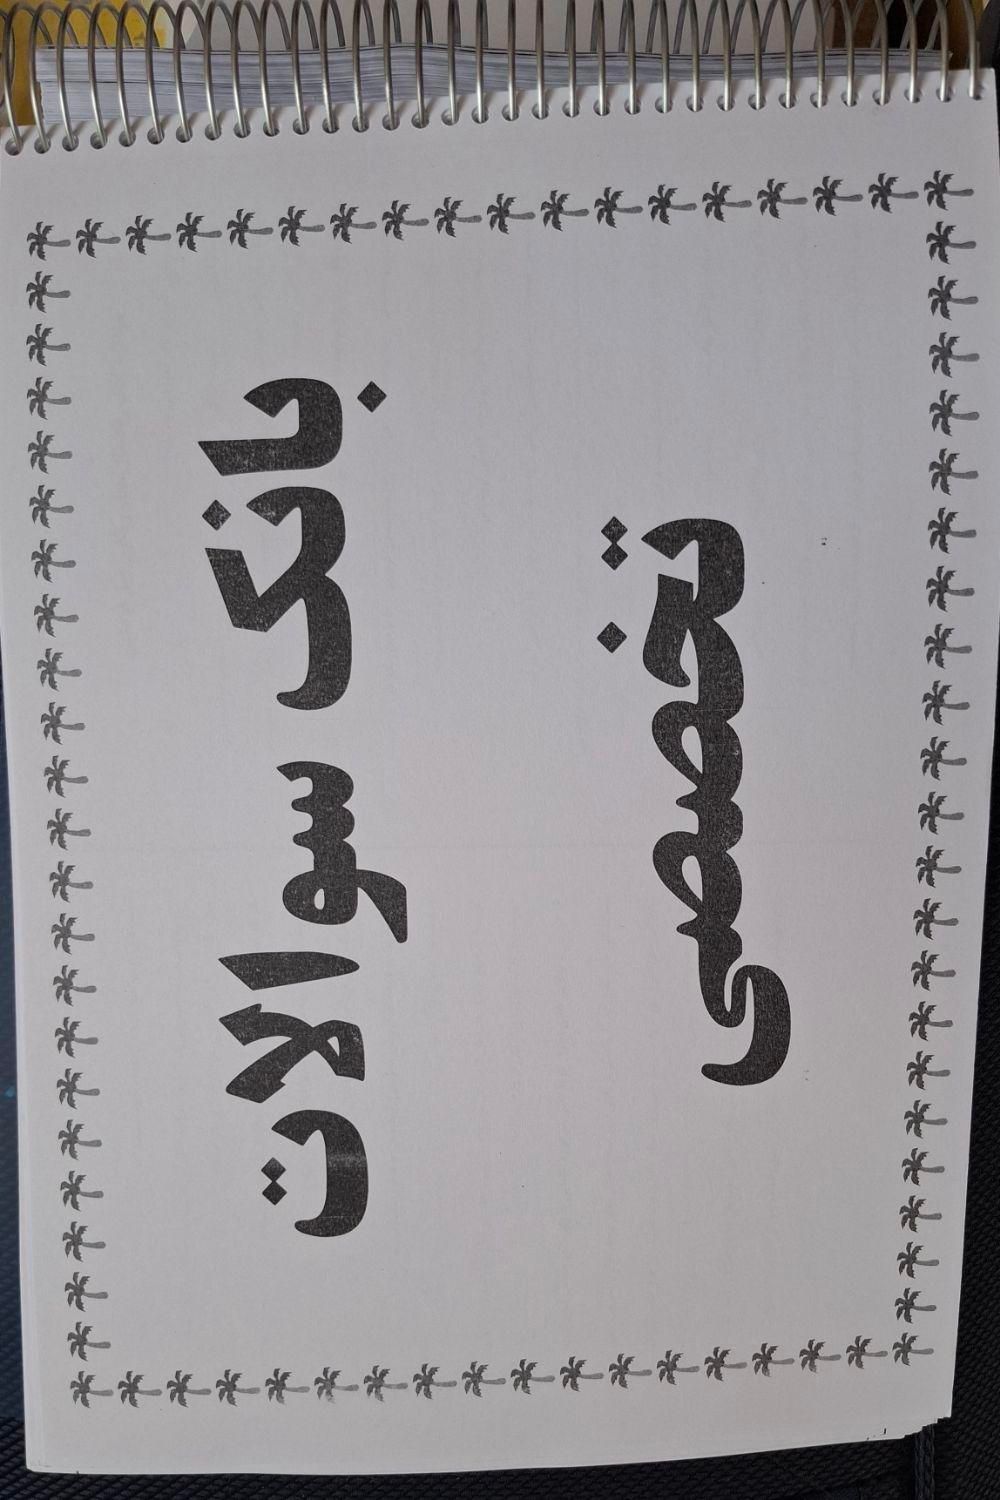 بانک سوالات
تخصصی